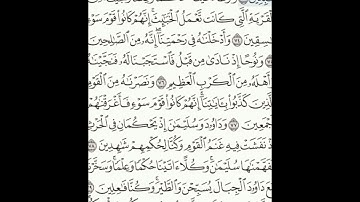 ٱلْقَرْيَةِ ٱلَّتِى كَانَت تَّعْمَلُ ٱلْخَبَٰٓئِثَ ۗ إِنَّهُمْ كَانُوا۟ قَوْمَ سَوْءٍ
فَٰسِقِينَ ٧٤ وَأَدْخَلْنَٰهُ فِى رَحْمَتِنَآ ۖ إِنَّهُۥ مِنَ ٱلصَّٰلِحِينَ
وَنُوحًا إِذْ نَادَىٰ مِن قَبْلُ فَٱسْتَجَبْنَا لَهُۥ فَنَجَّيْنَٰهُ
وَأَهْلَهُۥ مِنَ ٱلْكَرْبِ ٱلْعَظِيمِ ٧٦ وَنَصَرْنَٰهُ مِنَ ٱلْقَوْمِ
ٱلَّذِينَ كَذَّبُوا۟ بِـَٔايَٰتِنَآ ۚ إِنَّهُمْ كَانُوا۟ قَوْمَ سَوْءٍ فَأَغْرَقْنَٰهُمْ
أَجْمَعِينَ ٧٧ وَدَاوُۥدَ وَسُلَيْمَٰنَ إِذْ يَحْكُمَانِ فِى ٱلْحَرْثِ
إِذْ نَفَشَتْ فِيهِ غَنَمُ ٱلْقَوْمِ وَكُنَّا لِحُكْمِهِمْ شَٰهِدِينَ ٧٨
فَفَهَّمْنَٰهَا سُلَيْمَٰنَ ۚ وَكُلًّا ءَاتَيْنَا حُكْمًا وَعِلْمًا ۚ وَسَخَّرْنَا
مَعَ دَاوُۥدَ ٱلْجِبَالَ يُسَبِّحْنَ وَٱلطَّيْرَ ۚ وَكُنَّا فَٰعِلِينَ